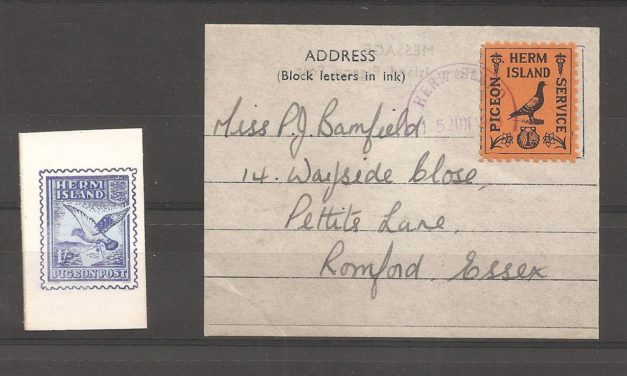 HERM
ISLAND
1/-
PIGEON POST
ADDRESS
(Block letters in ink)
HERM
5 JUN
PIGEON
HERM
ISLAND
SERVICE
Miss P.J. Bamfield
14. Wayside Close,
Pettits Lane,
Romford. Essex